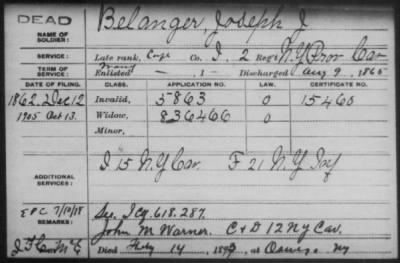 DEAD
NAME OF SOLDIER: Belanger, Joseph J
SERVICE: Late rank, Co. I, 2 Reg't N.Y. Prov Cav
TERM OF SERVICE: Enlisted — , 1 — Discharged Aug 9, 1865
DATE OF FILING. CLASS. APPLICATION NO. LAW. CERTIFICATE NO.
1862. Dec 12 Invalid, 5863 O 15460
1905 Oct 13. Widow, 836466 O
Minor,
ADDITIONAL SERVICES: I 15 N.Y. Cav. F 21 N.Y. Inf
EPC 7/10/18
REMARKS: See 618.287.
John M Warner. C & D 12 NY Cav.
Died 14, at Oswego NY